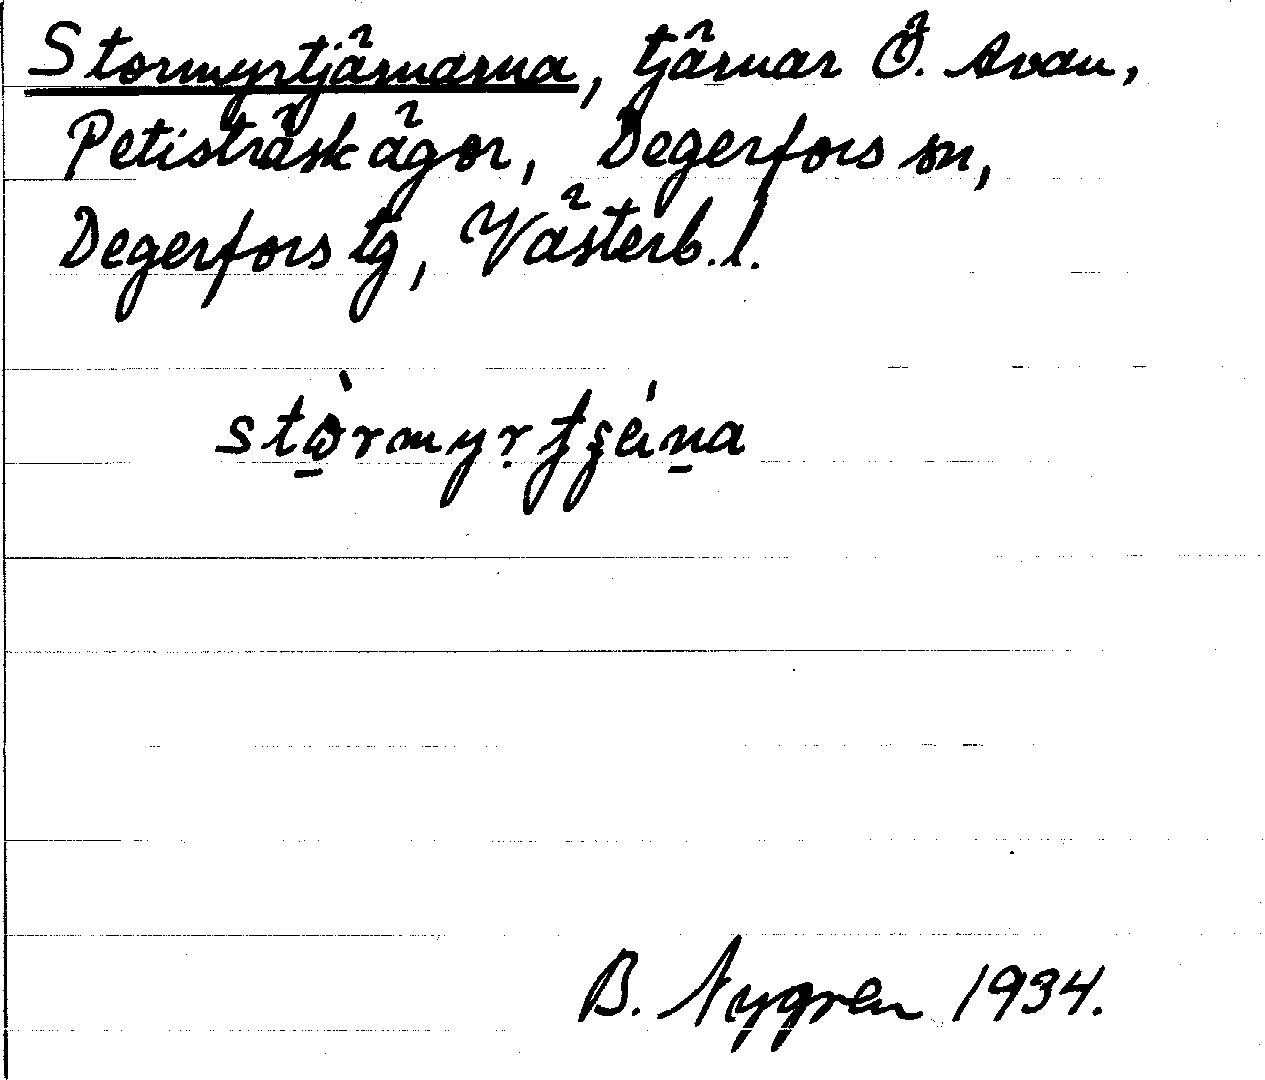 Stormyrtjärnarna, tjärnar Ö. Avan,
Petisträsk ägor, Degerfors sn,
Degerfors tg, Västerb. l.
B. Nygren 1934.